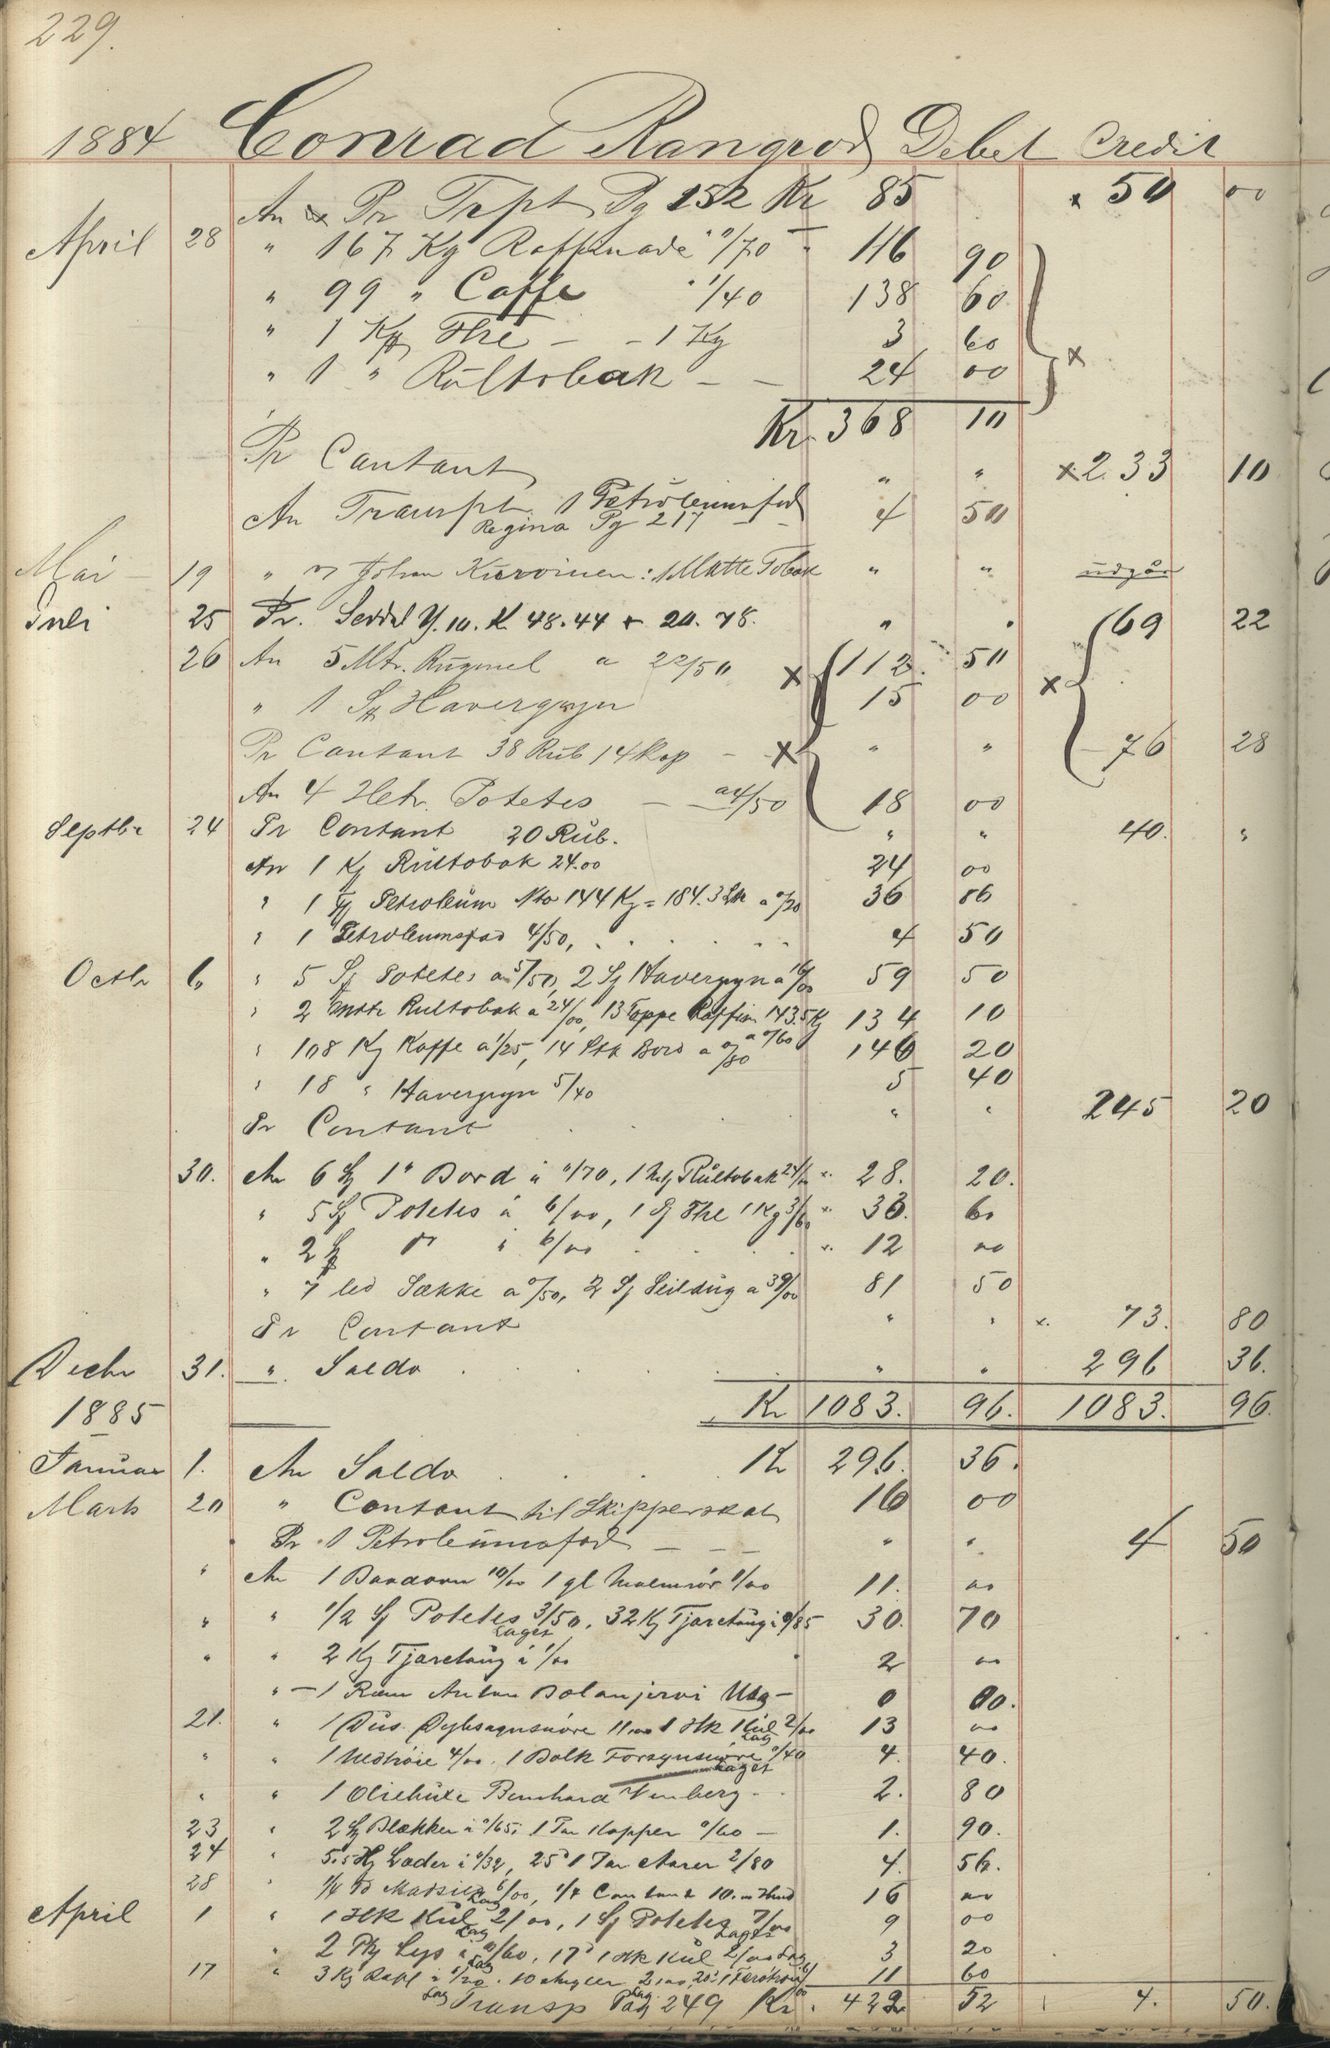 229.
1884 Conrad Rangrod Debet Credit
An Pr Trpt Pg 252 Kr 85 x 50 00
April 28 " 167 Kg Raffinade " 0/70 " 116 90
" 99 " Caffe " 1/40 138 60
" 1 The - - 1 Kg 3 60
" 1 " Rültobak - - 24 00 x
Kr. 368 10
Pr Contant " " x 233 10
An Transpt. 1 Petroleumsfad 4 50
Regina Pg 217
Mai 19 " Johan : 1 Matte Tobak " " udgår
Juli 25 Pr. Seddel Y. 10. K. 48.44 + 20.78. " " 69 22
26 An 5 Mtr. Rugmel a 22/50 x 112. 50 x
" 1 Sk Havergryn 15 00
Pr Contant 38 Rub 14 Kop - x " " 76 28
An 4 Hetr. Potetes - a 4/50 18 00
Septbr 24 Pr Contant 20 Rüb. " " 40. "
An 1 Rültobak 24.00 24 00
" 1 Petroleüm Nto 144 Kg = 184.3 Ltr a 0/20 36 86
" 1 Petroleumsfad 4/50, 4 50
Octbr 6 " 5 Sk Potetes a 5/50, 2 Sk Havergryn a 16/00 59 50
" 2 Rultobak a 24/00, 13 Toppe Raffin 143.5 Kg 134 10
a 0/60
" 108 Kg Kaffe a 1/25, 14 Stk Bord a 0/80 146 20
" 18 " Havergryn 5/40 5 40
Pr Contant " " 245 20
30. An 6 1" Bord á 0/70, 1 Rültobak 24/00 " 28. 20.
" 5 Sk Potetes á 6/00, 1 The 1 Kg 3/60 " 33. 60
" 2 Sk do á 6/00 " 12 00
" 7 led Sække a 0/50, 2 Seildüg a 39/00 81 50
Pr Contant " " x. 73. 80
Decbr 31. " Saldo " " 296 36.
Kr 1083. 96. 1083. 96.
1885
Januar 1. An Saldo Kr 296. 36.
Marts 20 " Contant til Skipperskat 16 00
Pr 1 Petroleümsfad - - - " " 4 50
" An 1 10/00 1 gl 1/00 11. 00
" " 1/2 Sk Potetes 3/50. 32 Kg Tjaretaüg á 0/85 30. 70
Laget
" " 2 Kg Tjaretaüg á 1/00 2 00
" - 1 Ram Anton Bolanjervi Udg - 0 80.
21. " 1 Düs. Dybsagnsnöre 11.00 1 Hk Kül 2/00 13 00
Lag
" " 1 4/00. 1 Bolk Forsynsnöre 0/40 4. 40.
Laget
" " 1 Oliehüve Bernhard 2. 80
23 " 2 Blækker á 0/65, 1 Par Kopper 0/60 - 1. 90.
24 " 5.5 Læder á 0/32, 25 1 Par Aarer 2/80 4. 56.
28 " 1/4 To 6/00, 1/4 Contant 10.00 16 00
Lag
April 1 " 1 Hk Kül 2/00, 1 Sk Potetes 7/00 9 00
Lag Laget
" 2 Lys á 0/60. 17 1 Hk Kül 2/00 Lag 3 20
Lag
17 " 3 Kg 11 60
Lag Lag
Transp Pag 249 Kr. 422 52 4. 50.